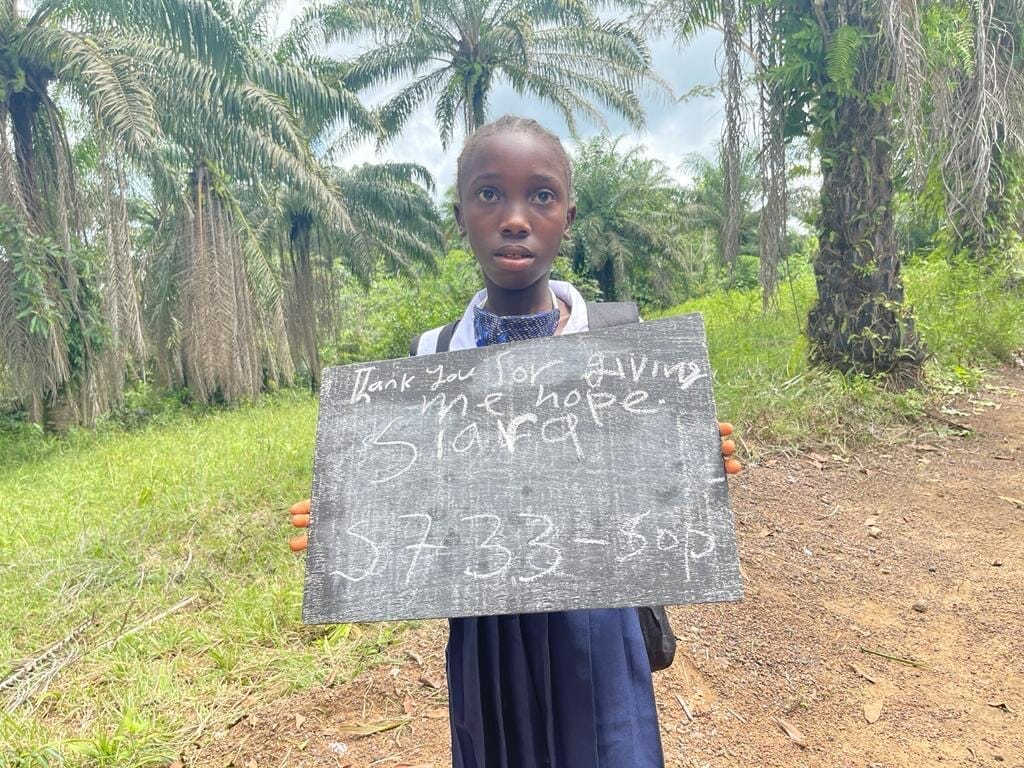 Thank you for giving
me hope.
Siara
S733-Sop